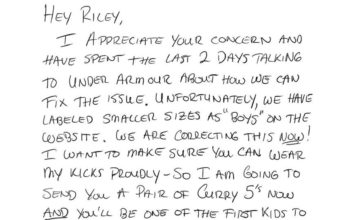 HEY RILEY,
I APPRECIATE YOUR CONCERN AND
HAVE SPENT THE LAST 2 DAYS TALKING
TO UNDER ARMOUR ABOUT HOW WE CAN
FIX THE ISSUE. UNFORTUNATELY, WE HAVE
LABELED SMALLER SIZES AS "BOYS" ON THE
WEBSITE. WE ARE CORRECTING THIS NOW!
I WANT TO MAKE SURE YOU CAN WEAR
MY KICKS PROUDLY - SO I AM GOING TO
SEND YOU A PAIR OF CURRY 5'S NOW
AND YOU'LL BE ONE OF THE FIRST KIDS TO